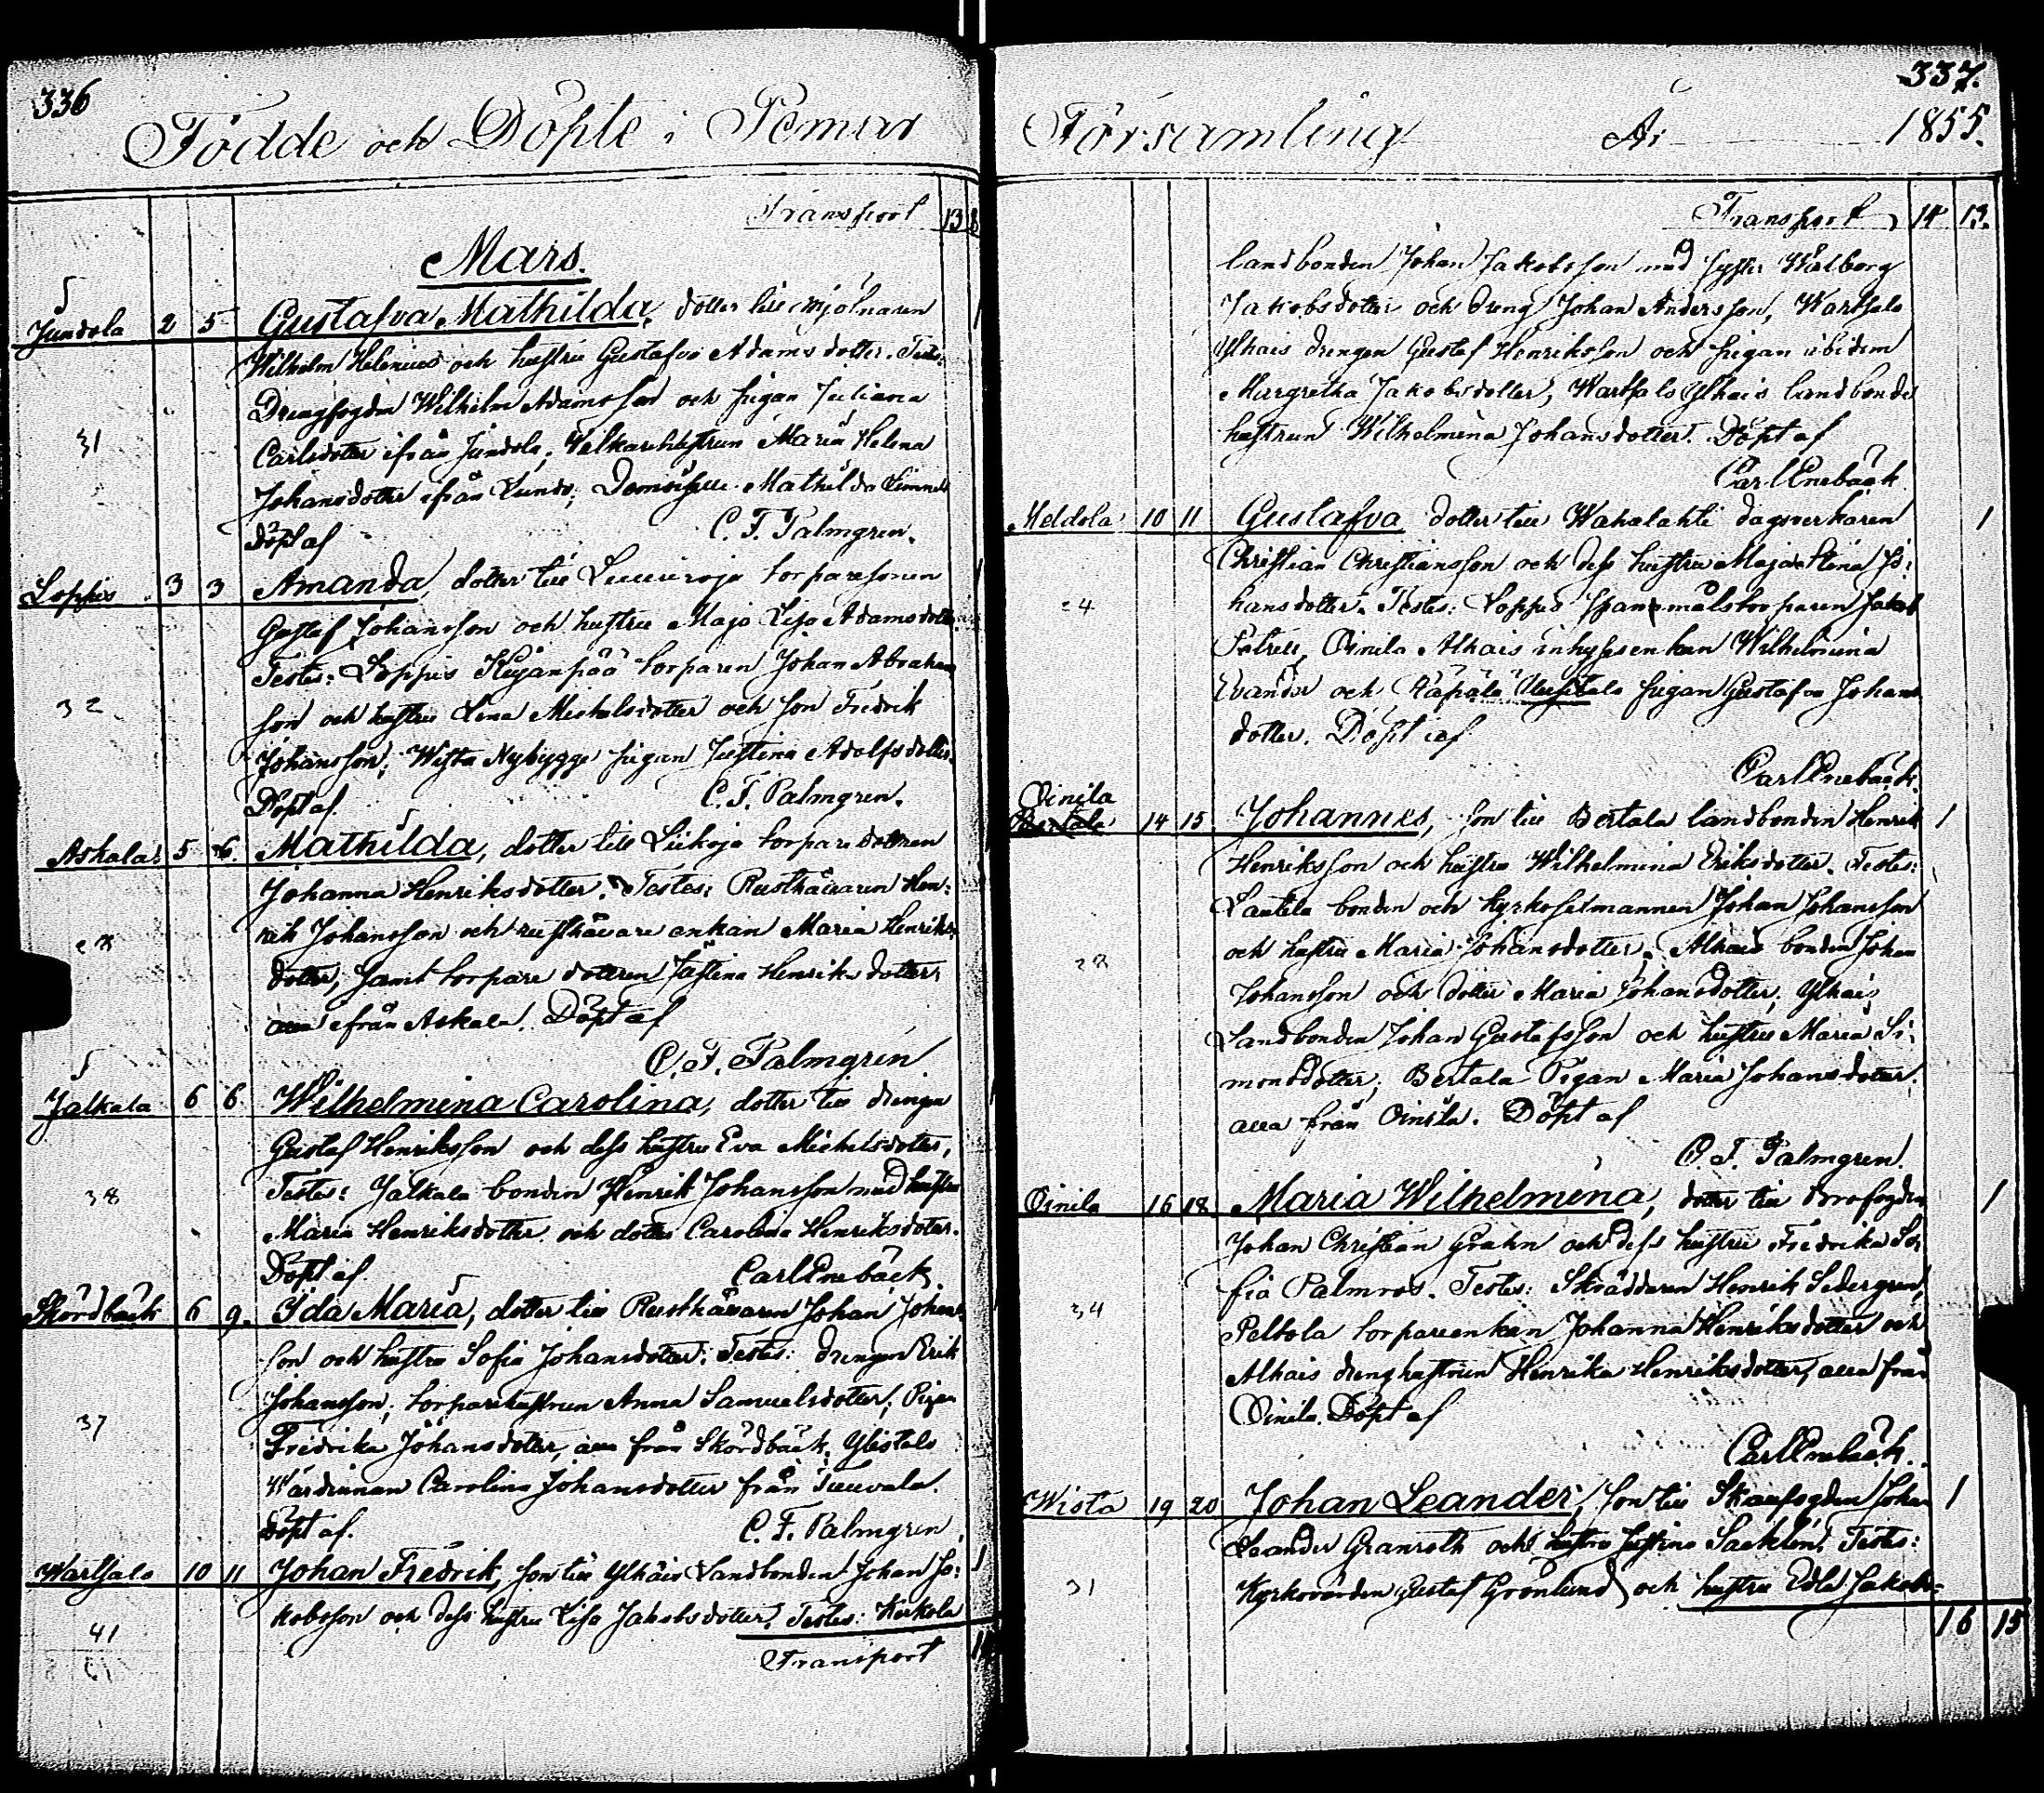 336
Födde och Döpte i Pemar
Transport 13 8
Mars.
Jundola 2 5 Gustafva Mathilda, dotter till mjölnaren
Wilhelm Helenius och hustru Gustafva Adamsdotter. Testes:
Drengfogden Wilhelm Adamsson och pigan Juliana
31
Carlsdotter ifrån Jundola, Välkarehustrun Maria Helena
Johansdotter ifrån Lundo; Demoiselle Mathilda
Döpt af C. F. Palmgren.
Loppis 3 3 Amanda, dotter till torparesonen
Gustaf Johansson och hustru Maja Lisa Adamsdotter
Testes: Loppis torparen Johan Abraham
32
son och hustru Lena Michelsdotter och son Fredrik
Johansson; Wista Nybygge pigan Justina Adolfsdotter.
Döpt af C. F. Palmgren.
Askala 5 6 Mathilda, dotter till Liekoja torpare dottren
Johanna Henriksdotter. Testes: Rusthållaren Hen:
rik Johansson och rusthållare enkan Maria Henriks:
28
dotter, samt torpare dottren Justina Henriksdotter,
alla ifrån Askala. Döpt af
C. F. Palmgren
Jalkala 6 6 Wilhelmina Carolina, dotter till drengen
Gustaf Henriksson och dess hustru Eva Michelsdotter,
38
Testes: Jalkala bonden Henrik Johansson med hustru
Maria Henriksdotter och dotter Carolina Henriksdotter.
Döpt af Carl Enebäck.
Skördbäck 6 9. Ida Maria, dotter till Rusthållaren Johan Johans
son och hustru Sofia Johansdotter. Testes: drengen Erik
37
Johansson; torparehustrun Anna Samuelsdotter; Pigan
Fredrika Johansdotter, alla från Skördbäck. Ylistalo
Wärdinnan Carolina Johansdotter från Tuuvala.
Döpt af. C. F. Palmgren.
Wartsalo 10 11 Johan Fredrik, son till Ylhäis Landbonden Johan Ja: 1
kobsson och dess hustru Lisa Jakobsdotter. Testes: Kerkola
41
Transport 14
337.
Församling År 1855.
Transport 14 13.
landbonden Johan Jakobsson med syster Walborg
Jakobsdotter och dreng Johan Andersson, Wartsala
Ylhais drengen Gustaf Henriksson och pigan ibidem
Margretha Jakobsdotter, Wartsala Ylhais landbonde
hustrun Wilhelmina Johansdotter. Döpt af
Carl Enebäck
Meldola 10 11 Gustafva dotter till Wahalahti dagsverkaren 1
Christian Christiansson och dess hustru Maja Stina Jo:
24
hansdotter. Testes: Loppis Spanmålstorparen Jakob
Oinila Alhais inhyses enkan Wilhelmina
Evander och pigan Gustafva Johans
dotter. Döpt af
Carl Enebäck.
Oinila
Bertala 14 15 Johannes, son till Bertala landbonden Henrik 1
Henriksson och hustru Wilhelmina Eriksdotter. Testes:
Lautila bonden och kyrkosexmannen Johan Johansson
28
och hustru Maria Johansdotter; Alhais bonden Johan
Johansson och dotter Maria Johansdotter; Ylhais
Landbonden Johan Gustafsson och hustru Maria Si:
monsdotter; Bertala Pigan Maria Johansdotter.
alla från Oinila. Döpt af
C. F. Palmgren.
Oinila 16 18 Maria Wilhelmina, dotter till Brofogden 1
Johan Christian Grahn och dess hustru Fredrika So:
34
fia Palmros. Testes: Skräddaren Henrik Sedergren,
Peltola torpareenkan Johanna Henriksdotter och
Alhais drenghustrun Henrika Henriksdotter, alla från
Oinila. Döpt af
Carl Enebäck.
Wista 19 20 Johan Leander, son till Skaufogden Johan 1
Leander Granroth och hustru Justina Sacklén. Testes:
31
Kyrkovärden Gustaf Grönlund och hustru Edla Jakobs=
16 15